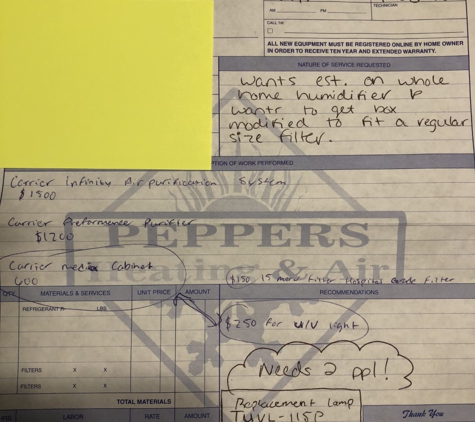 TECHNICIAN
AM PM
CALL-IN:
ALL NEW EQUIPMENT MUST BE REGISTERED ONLINE BY HOME OWNER
IN ORDER TO RECEIVE TEN YEAR AND EXTENDED WARRANTY.
NATURE OF SERVICE REQUESTED
wants est. on whole
home humidifier &
wants to get box
modified to fit a regular
size filter.
TION OF WORK PERFORMED
Carrier Infinity Air purification System
$1500
Carrier Preformance Purifier
$1200
PEPPERS
Heating & Air
Carrier media Cabinet
600
$150 15 Filter Hospital Grade Filter
QTY. MATERIALS & SERVICES UNIT PRICE AMOUNT RECOMMENDATIONS
REFRIGERANT R- LBS
$250 for U/V light
Needs 2 ppl!
FILTERS X X
FILTERS X X
TOTAL MATERIALS
Replacement Lamp
TUVL-115P
LABOR RATE AMOUNT
Thank You